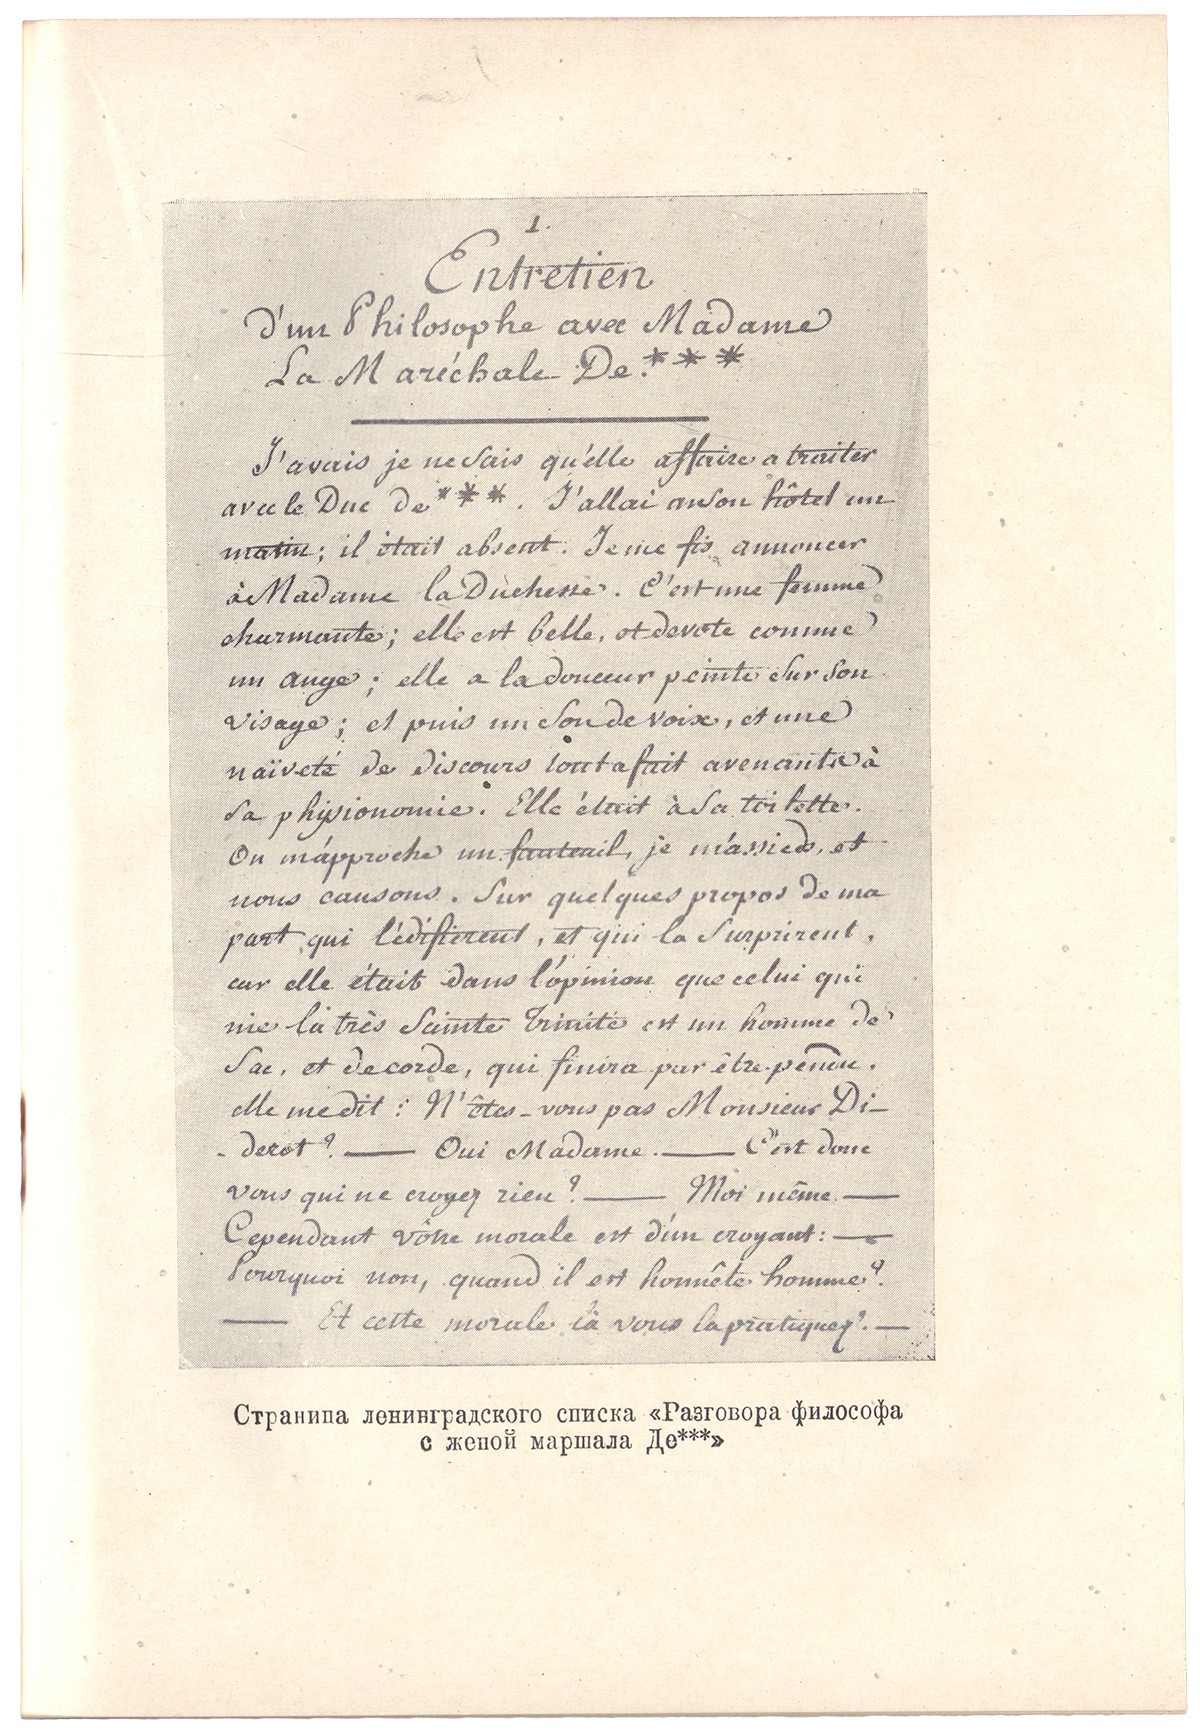 1.
Entretien
D'un Philosophe avec Madame
La Maréchale De.***
J'avais je ne sais qu'elle affaire a traiter
avec le Duc de ***. J'allai au son hôtel un
matin; il était absent. Je me fis annoncer
à Madame la Duchesse. C'est une femme
charmante; elle est belle, et devote comme
un ange; elle a la douceur peinte sur son
visage; et puis un son de voix, et une
naïveté de discours tout a fait avenante à
sa physionomie. Elle était à sa toilette.
On m'approche un fauteuil, je m'assieds, et
nous causons. Sur quelques propos de ma
part qui l'édifierent, et qui la surprirent,
car elle était dans l'opinion que celui qui
nie la très Sainte Trinité est un homme de
Sac, et de corde, qui finira par être pendu.
elle me dit: N'êtes-vous pas Monsieur Di-
-derot? — Oui Madame. — C'est donc
vous qui ne croyez rien? — Moi même —
Cependant vôtre morale est d'un croyant: —
Pourquoi non, quand il est honnête homme?.
— Et cette morale là vous la pratiquez?. —
Страница ленинградского списка «Разговора философа
с женой маршала Де***»